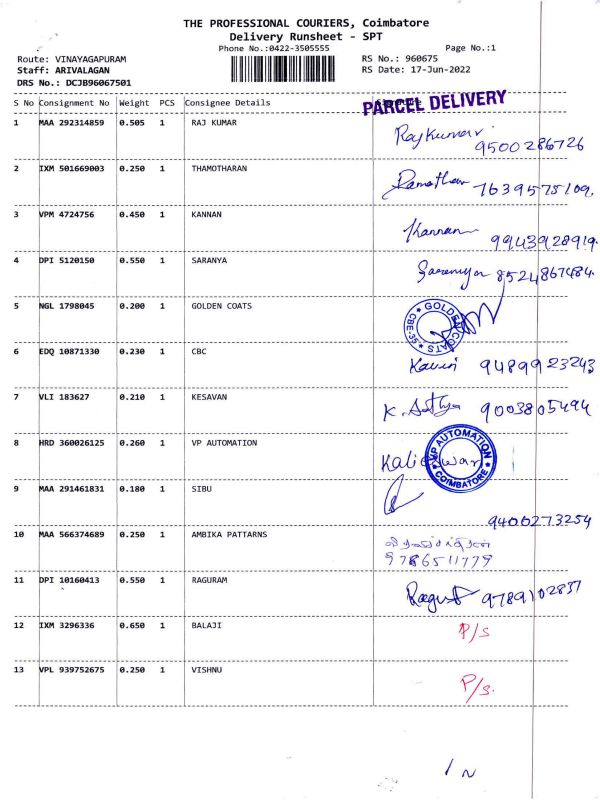 THE PROFESSIONAL COURIERS, Coimbatore
Delivery Runsheet - SPT
Phone No.:0422-3505555 Page No.:1
Route: VINAYAGAPURAM RS No.: 960675
Staff: ARIVALAGAN RS Date: 17-Jun-2022
DRS No.: DCJB96067501
PARCEL DELIVERY
S No Consignment No Weight PCS Consignee Details
1 MAA 292314859 0.505 1 RAJ KUMAR Rajkumar 9500286726
2 IXM 501669003 0.250 1 THAMOTHARAN Damothar 7639575109
3 VPM 4724756 0.450 1 KANNAN Kannan 9943928919
4 DPI 5120150 0.550 1 SARANYA Saranya 8524867484
5 NGL 1798045 0.200 1 GOLDEN COATS GOLDEN COATS CBE-35
6 EDQ 10871330 0.230 1 CBC Kavin 9489923243
7 VLI 183627 0.210 1 KESAVAN K. Sathya 9003805494
8 HRD 360026125 0.260 1 VP AUTOMATION VP AUTOMATION COIMBATORE
9 MAA 291461831 0.180 1 SIBU 9400273254
10 MAA 566374689 0.250 1 AMBIKA PATTARNS 9786511779
11 DPI 10160413 0.550 1 RAGURAM 9789102837
12 IXM 3296336 0.650 1 BALAJI P/S
13 VPL 939752675 0.250 1 VISHNU P/S.